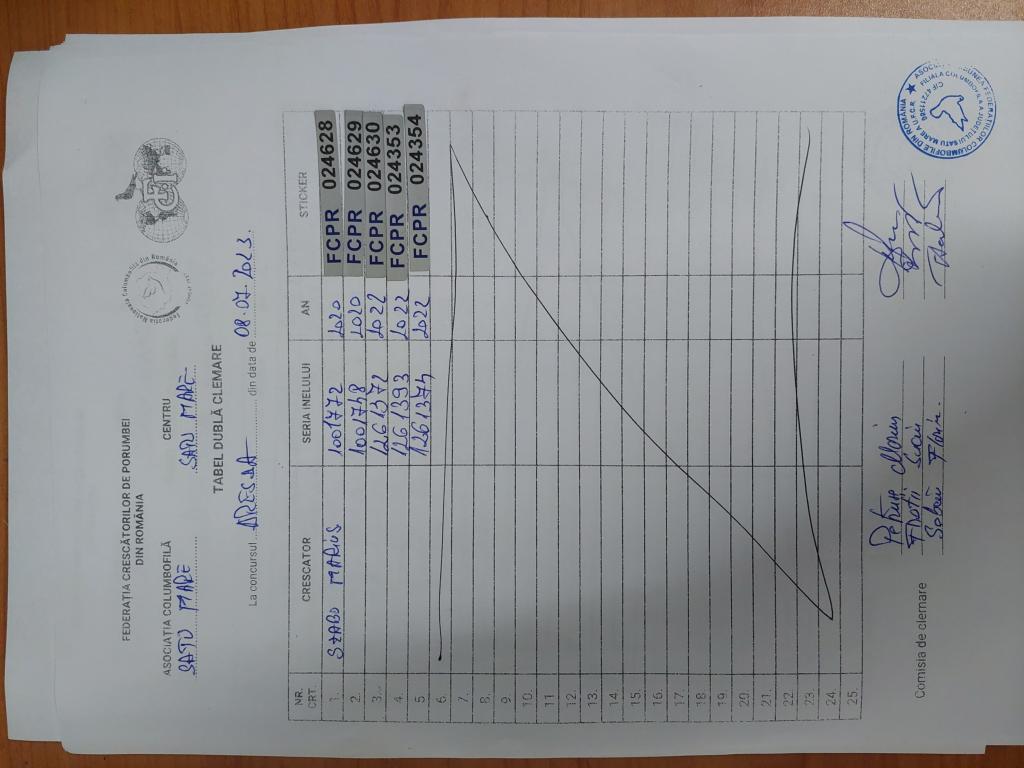 FEDERAȚIA CRESCĂTORILOR DE PORUMBEI
DIN ROMÂNIA
Federația Națională Columbofilă din România
ASOCIAȚIA COLUMBOFILĂ
CENTRU
SATU MARE
SATU MARE
TABEL DUBLĂ CLEMARE
La concursul din data de 08.07.2023.
NR. CRT. CRESCATOR SERIA INELULUI AN STICKER
1. SZABO MARIUS 1001772 2020 FCPR 024628
2. 1001748 2020 FCPR 024629
3. 1261372 2022 FCPR 024630
4. 1261393 2022 FCPR 024353
5 1261374 2022 FCPR 024354
6.
7.
8.
9.
10.
11
12.
13.
14
15.
16.
17.
18
19.
20.
21.
22
23.
24.
25.
Comisia de clemare
SATU MARE A U.F.C.R.
CIF 47211508